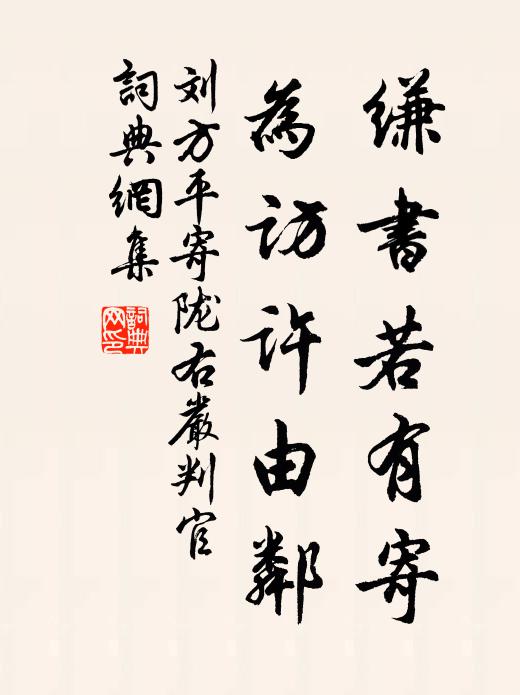 缣書若有寄
為訪許由鄰
刘方平寄陇右嚴判官
詞典網集
詞典
网印